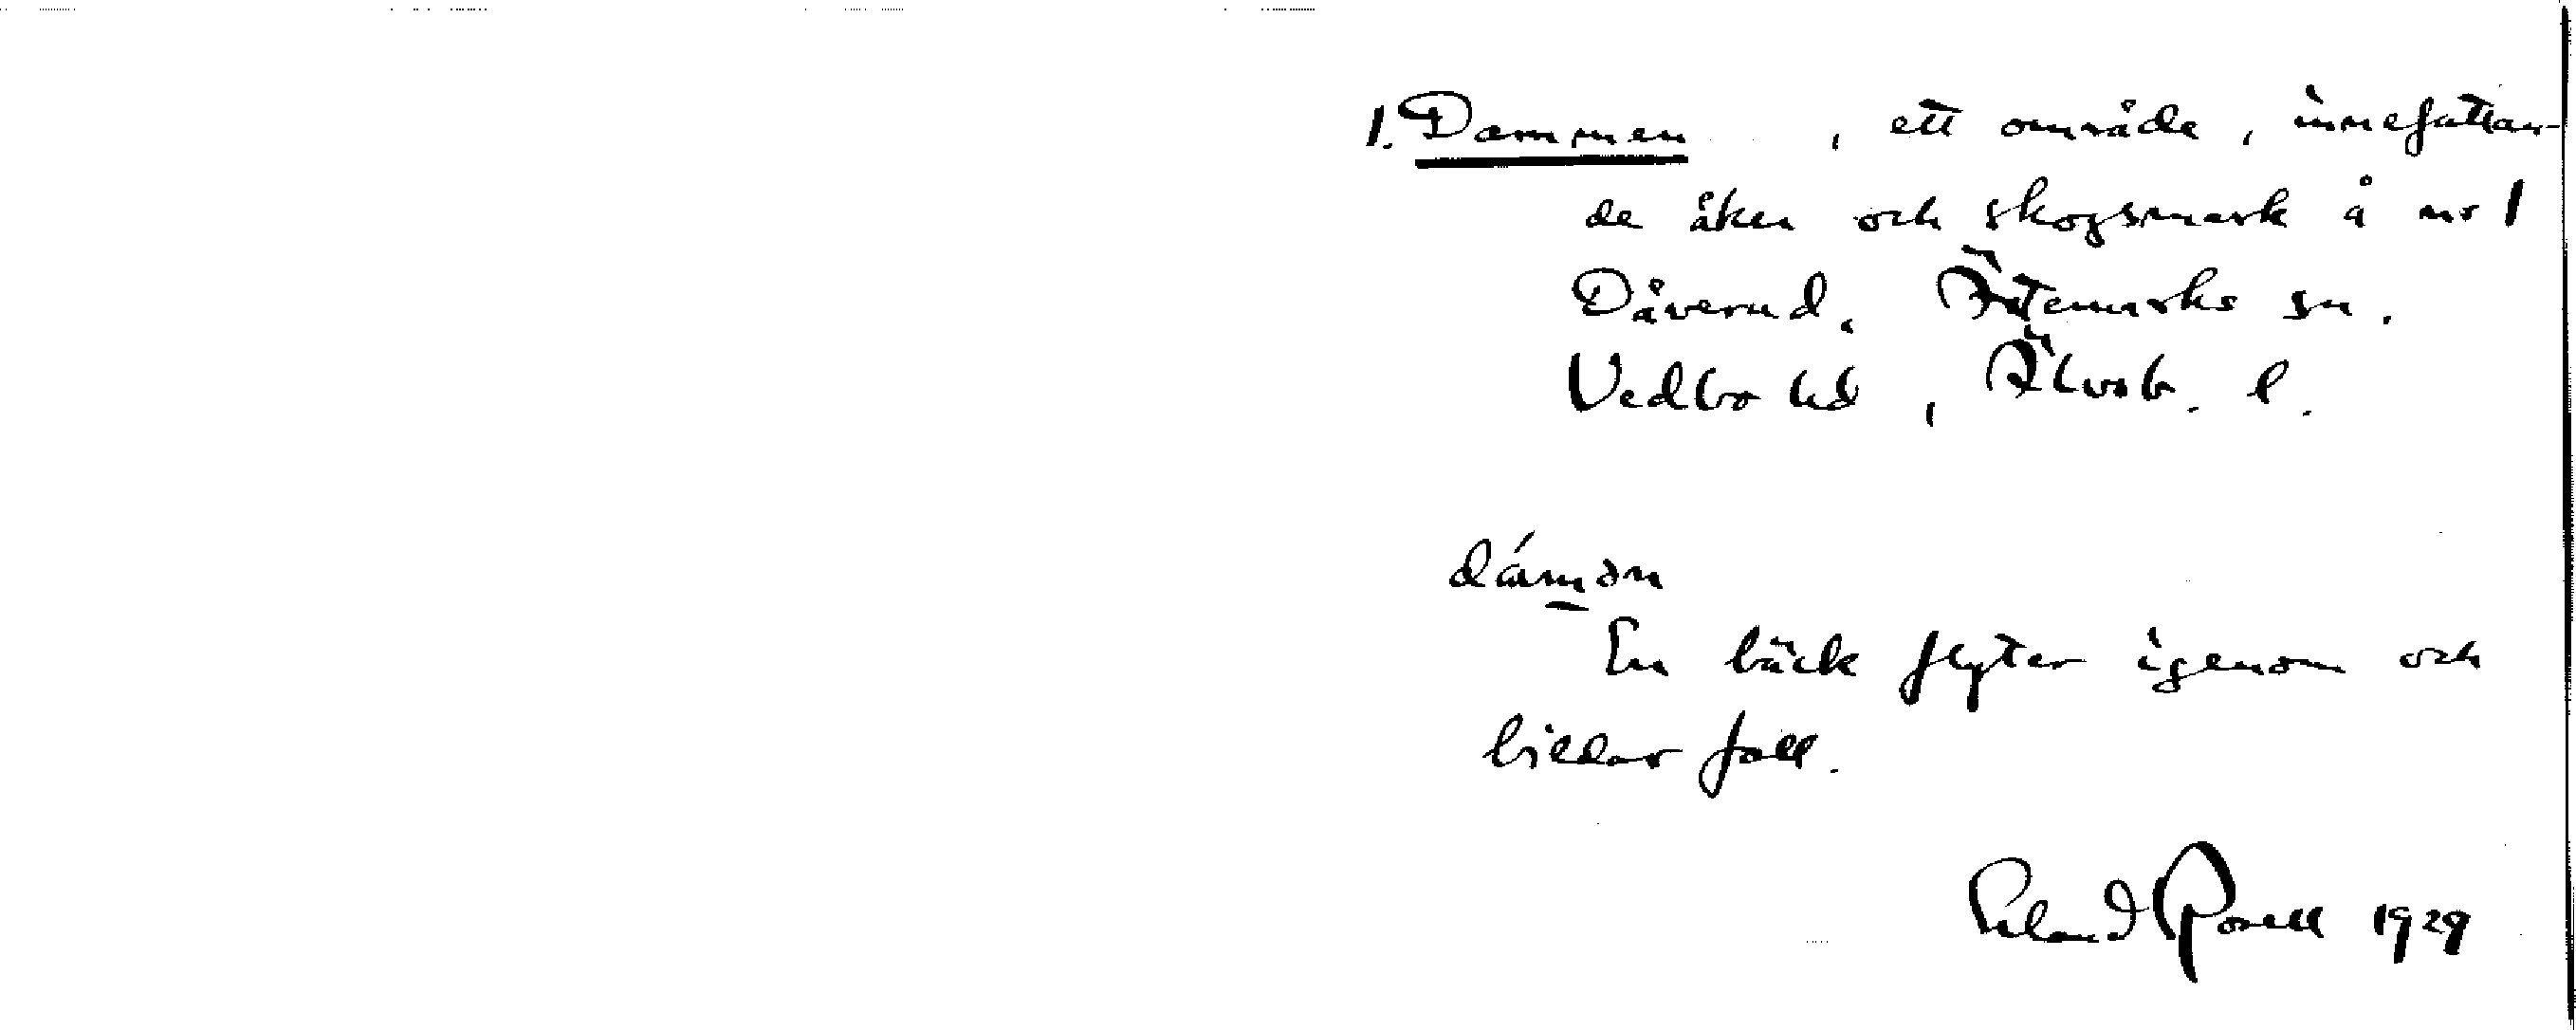 1. Dammen, ett område, innefattan-
de åker och skogsmark å nr 1
Dåverud, Ärtemarks sn.
Vedbo hd, Älvsb. l.
dámon
En bäck flyter igenom och
bildar fall.
1929